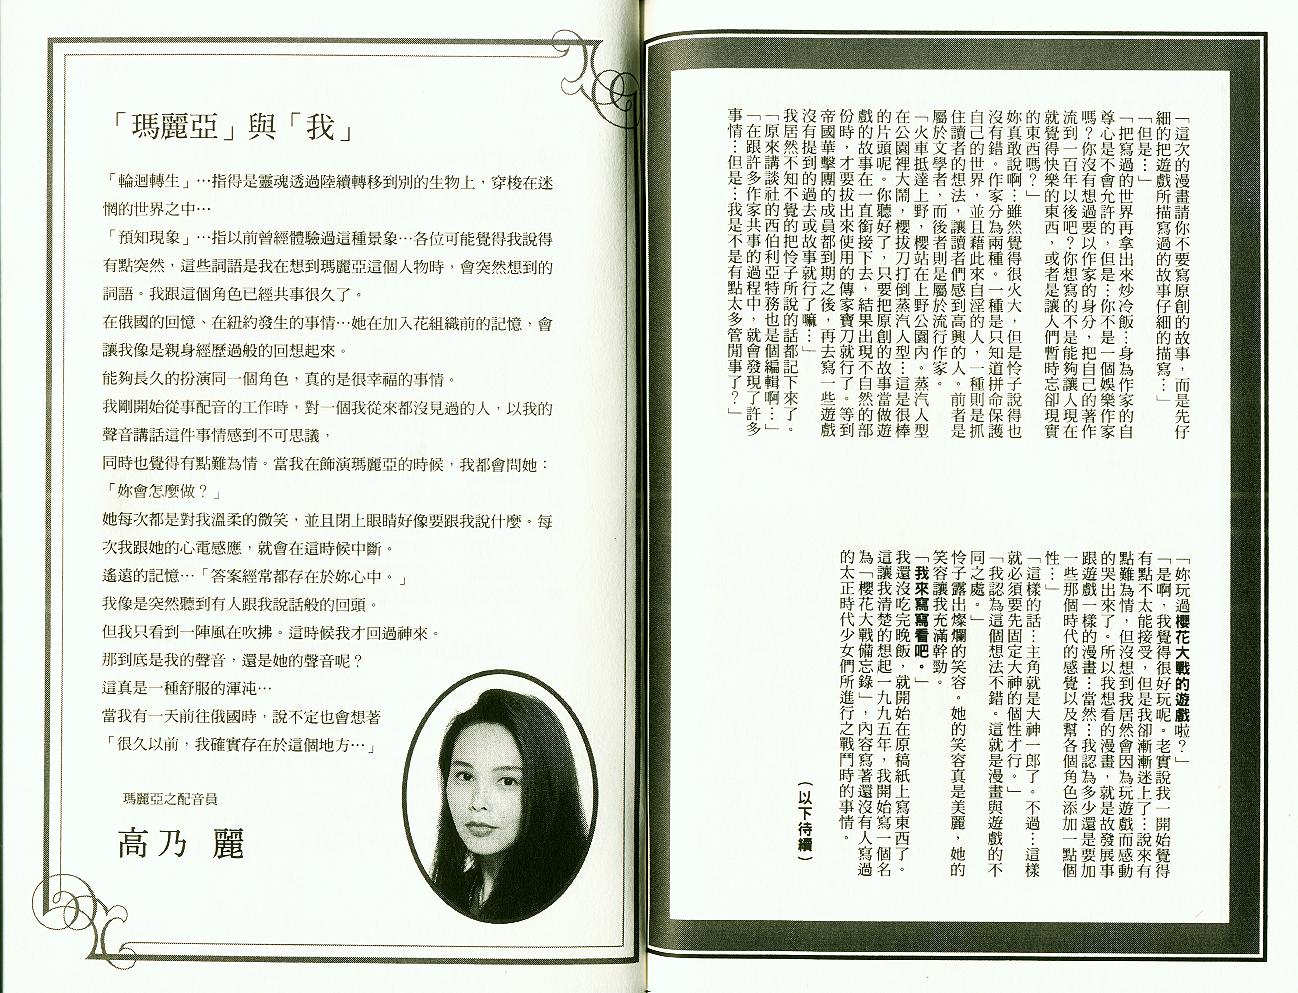 「這次的漫畫請你不要寫原創的故事，而是先仔
細的把遊戲所描寫過的故事仔細的描寫…」
「但是…」
「把寫過的世界再拿出來炒冷飯…身為作家的自
尊心是不會允許的，但是…你不是一個娛樂作家
嗎？你沒有想過要以作家的身分，把自己的著作
流到一百年以後吧？你想寫的不是能夠讓人現在
就覺得快樂的東西，或者是讓人們暫時忘卻現實
的東西嗎？」
妳真敢說啊…雖然覺得很火大，但是怜子說得也
沒有錯。作家分為兩種。一種是只知道拼命保護
自己的世界，並且藉此來自淫的人，一種則是抓
住讀者的想法，讓讀者們感到高興的人。前者是
屬於文學者，而後者則是屬於流行作家。
「火車抵達上野，櫻站在上野公園內。蒸汽人型
在公園裡大鬧，櫻拔刀打倒蒸汽人型…這是很棒
的片頭呢。你聽好了，只要把原創的故事當做遊
戲的故事在一直銜接下去，結果出現不自然的部
份時，才要拔出來使用的傳家寶刀就行了。等到
帝國華擊團的成員都到期之後，再去寫一些遊戲
沒有提到的過去或故事就行了嘛…」
我居然不知不覺的把怜子所說的話都記下來了。
「原來講談社的西伯利亞特務也是個編輯啊…」
「在跟許多作家共事的過程中，就會發現了許多
事情…但是…我是不是有點太多管閒事了？」
「妳玩過櫻花大戰的遊戲啦？」
「是啊，我覺得很好玩呢。老實說我一開始覺得
有點不太能接受，但是我卻漸漸迷上了…說來有
點難為情，但沒想到我居然會因為玩遊戲而感動
的哭出來了。所以我想看的漫畫，就是故發展事
跟遊戲一樣的漫畫…當然…我認為多少還是要加
一些那個時代的感覺以及幫各個角色添加一點個
性…」
「這樣的話…主角就是大神一郎了。不過…這樣
就必須要先固定大神的個性才行。」
「我認為這個想法不錯。這就是漫畫與遊戲的不
同之處。」
怜子露出燦爛的笑容。她的笑容真是美麗，她的
笑容讓我充滿幹勁。
「我來寫寫看吧。」
我還沒吃完晚飯，就開始在原稿紙上寫東西了。
這讓我清楚的想起一九九五年，我開始寫一個名
為「櫻花大戰備忘錄」，內容寫著還沒有人寫過
的太正時代少女們所進行之戰鬥時的事情。
（以下待續）
「瑪麗亞」與「我」
「輪迴轉生」…指得是靈魂透過陸續轉移到別的生物上，穿梭在迷
惘的世界之中…
「預知現象」…指以前曾經體驗過這種景象…各位可能覺得我說得
有點突然，這些詞語是我在想到瑪麗亞這個人物時，會突然想到的
詞語。我跟這個角色已經共事很久了。
在俄國的回憶、在紐約發生的事情…她在加入花組織前的記憶，會
讓我像是親身經歷過般的回想起來。
能夠長久的扮演同一個角色，真的是很幸福的事情。
我剛開始從事配音的工作時，對一個我從來都沒見過的人，以我的
聲音講話這件事情感到不可思議，
同時也覺得有點難為情。當我在飾演瑪麗亞的時候，我都會問她：
「妳會怎麼做？」
她每次都是對我溫柔的微笑，並且閉上眼睛好像要跟我說什麼。每
次我跟她的心電感應，就會在這時候中斷。
遙遠的記憶…「答案經常都存在於妳心中。」
我像是突然聽到有人跟我說話般的回頭。
但我只看到一陣風在吹拂。這時候我才回過神來。
那到底是我的聲音，還是她的聲音呢？
這真是一種舒服的渾沌…
當我有一天前往俄國時，說不定也會想著
「很久以前，我確實存在於這個地方…」
瑪麗亞之配音員
高乃 麗